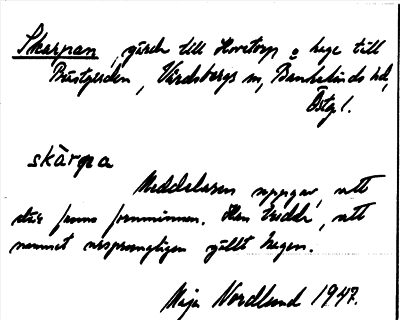 Skarpan, gärde till Hovetorp o hage till
Prästgården, Vårdsbergs sn, Bankekinds hd,
Östg l.
skàrpa
Meddelaren uppgav, att
där fanns fornminnen. Han trodde, att
namnet ursprungligen gällt hagen.
Maja Nordlund 1947.